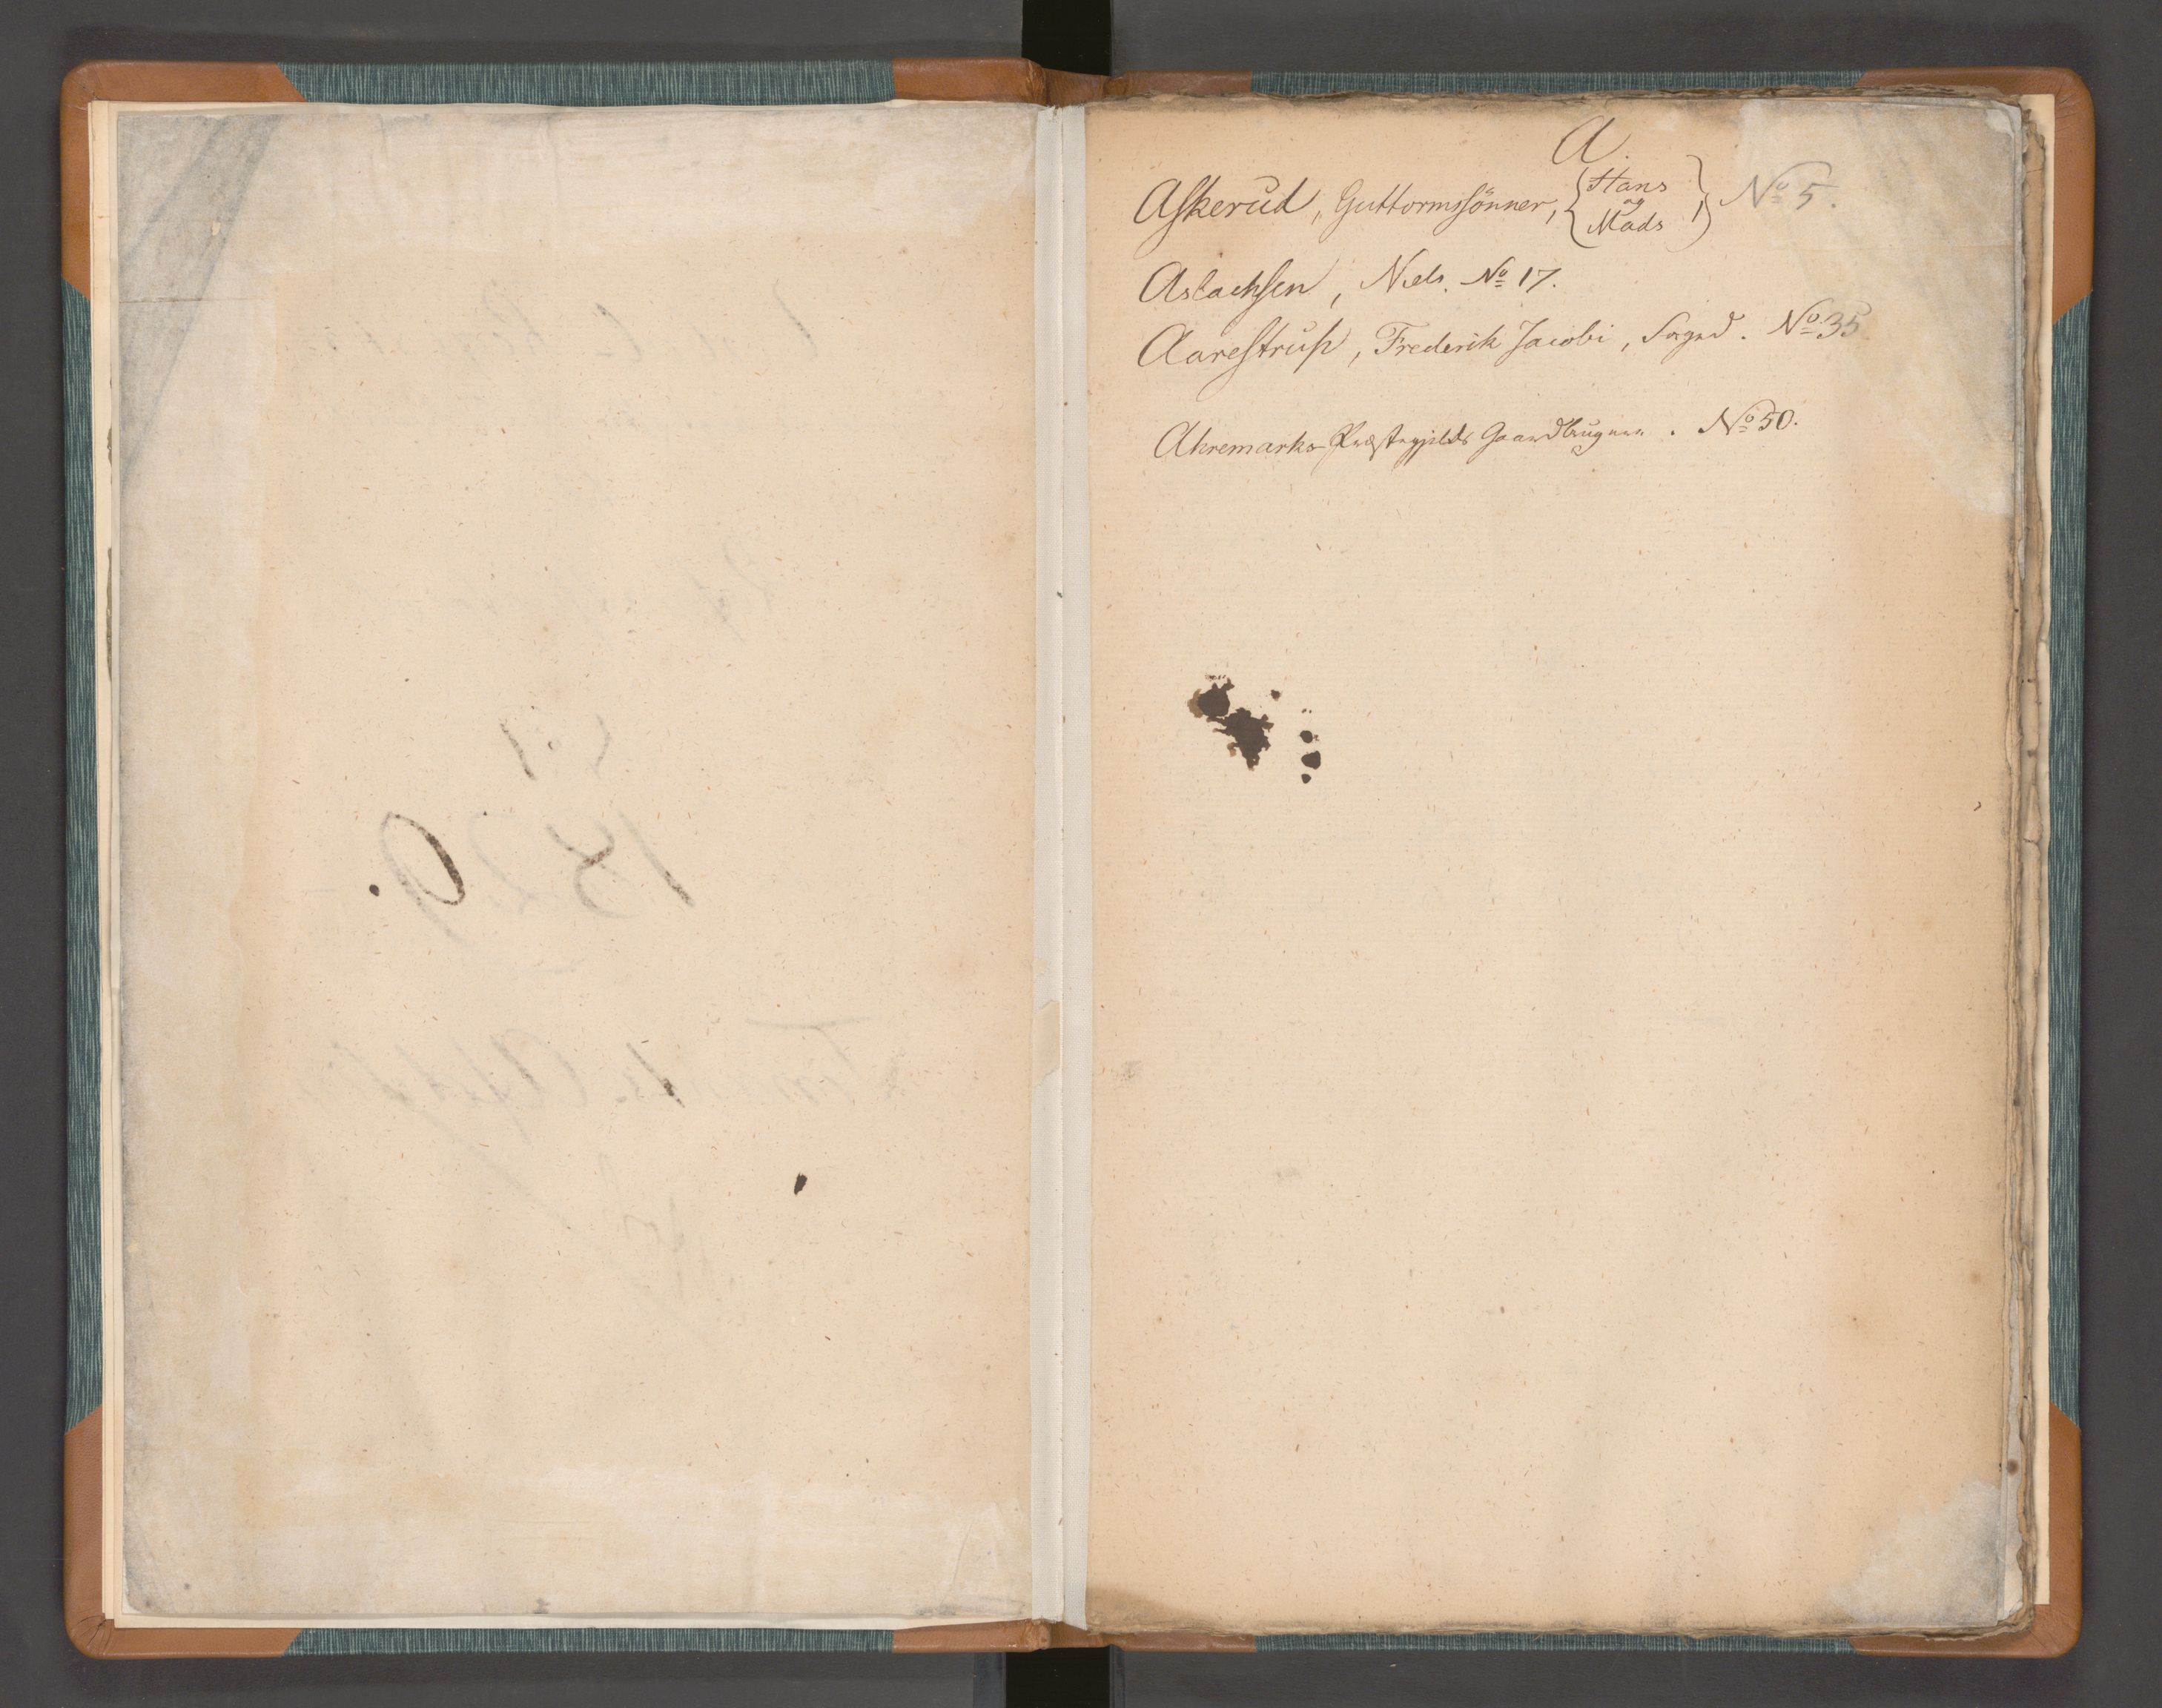 A.
Askerud, Guttormssönner, { Hans og Mads }, No 5.
Aslachsen, Niels. No 17.
Aarestrup, Frederik Jacobi, Foged. No 35
Ahremarks Præstegjelds Gaardbrugere. No 50.
1829.